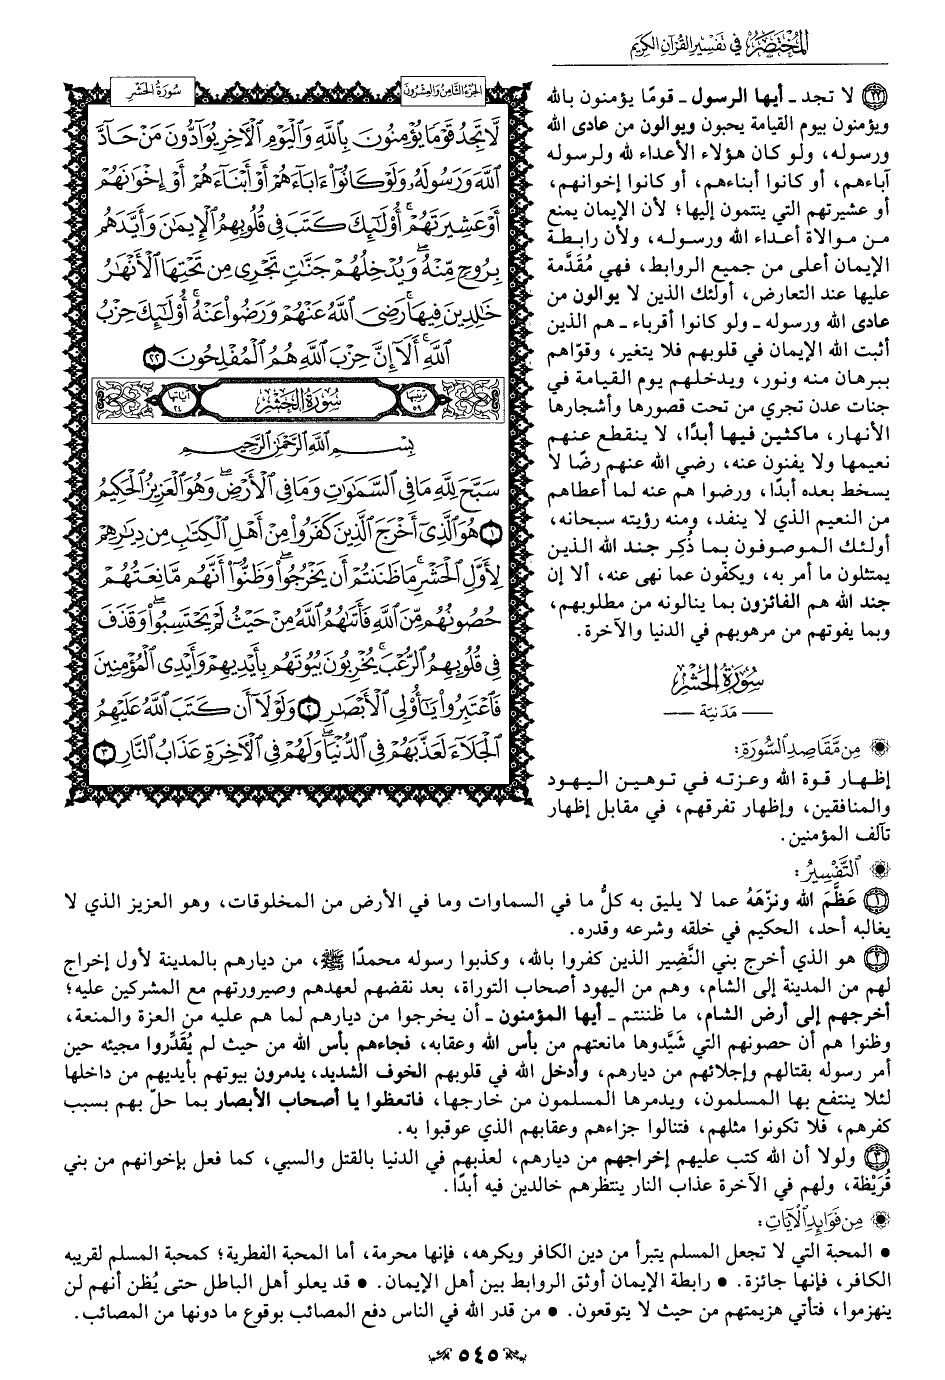 المختصر في تفسير القرآن الكريم
سورة الحشر
الجزء الثامن والعشرون
لَّا تَجِدُ قَوْمًا يُؤْمِنُونَ بِٱللَّهِ وَٱلْيَوْمِ ٱلْأَخِرِ يُوَآدُّونَ مَنْ حَآدَّ
ٱللَّهَ وَرَسُولَهُۥ وَلَوْ كَانُوٓا۟ ءَابَآءَهُمْ أَوْ أَبْنَآءَهُمْ أَوْ إِخْوَٰنَهُمْ
أَوْ عَشِيرَتَهُمْ ۚ أُو۟لَٰٓئِكَ كَتَبَ فِى قُلُوبِهِمُ ٱلْإِيمَٰنَ وَأَيَّدَهُم
بِرُوحٍ مِّنْهُ ۖ وَيُدْخِلُهُمْ جَنَّٰتٍ تَجْرِى مِن تَحْتِهَا ٱلْأَنْهَٰرُ
خَٰلِدِينَ فِيهَا ۚ رَضِىَ ٱللَّهُ عَنْهُمْ وَرَضُوا۟ عَنْهُ ۚ أُو۟لَٰٓئِكَ حِزْبُ
ٱللَّهِ ۚ أَلَآ إِنَّ حِزْبَ ٱللَّهِ هُمُ ٱلْمُفْلِحُونَ ٢٢
ترتيبها ٥٩ سورة الحشر آياتها ٢٤
بِسْمِ ٱللَّهِ ٱلرَّحْمَٰنِ ٱلرَّحِيمِ
سَبَّحَ لِلَّهِ مَا فِى ٱلسَّمَٰوَٰتِ وَمَا فِى ٱلْأَرْضِ ۖ وَهُوَ ٱلْعَزِيزُ ٱلْحَكِيمُ
١ هُوَ ٱلَّذِىٓ أَخْرَجَ ٱلَّذِينَ كَفَرُوا۟ مِنْ أَهْلِ ٱلْكِتَٰبِ مِن دِيَٰرِهِمْ
لِأَوَّلِ ٱلْحَشْرِ ۚ مَا ظَنَنتُمْ أَن يَخْرُجُوا۟ ۖ وَظَنُّوٓا۟ أَنَّهُم مَّانِعَتُهُمْ
حُصُونُهُم مِّنَ ٱللَّهِ فَأَتَىٰهُمُ ٱللَّهُ مِنْ حَيْثُ لَمْ يَحْتَسِبُوا۟ ۖ وَقَذَفَ
فِى قُلُوبِهِمُ ٱلرُّعْبَ ۚ يُخْرِبُونَ بُيُوتَهُم بِأَيْدِيهِمْ وَأَيْدِى ٱلْمُؤْمِنِينَ
فَٱعْتَبِرُوا۟ يَٰٓأُو۟لِى ٱلْأَبْصَٰرِ ٢ وَلَوْلَآ أَن كَتَبَ ٱللَّهُ عَلَيْهِمُ
ٱلْجَلَآءَ لَعَذَّبَهُمْ فِى ٱلدُّنْيَا ۖ وَلَهُمْ فِى ٱلْأَخِرَةِ عَذَابُ ٱلنَّارِ ٣
٢٢ لا تجد - أيها الرسول - قومًا يؤمنون بالله
ويؤمنون بيوم القيامة يحبون ويوالون من عادى الله
ورسوله، ولو كان هؤلاء الأعداء لله ولرسوله
آباءهم، أو كانوا أبناءهم، أو كانوا إخوانهم،
أو عشيرتهم التي ينتمون إليها؛ لأن الإيمان يمنع
من موالاة أعداء الله ورسوله، ولأن رابطة
الإيمان أعلى من جميع الروابط، فهي مُقَدَّمة
عليها عند التعارض، أولئك الذين لا يوالون من
عادى الله ورسوله - ولو كانوا أقرباء - هم الذين
أثبت الله الإيمان في قلوبهم فلا يتغير، وقوّاهم
ببرهان منه ونور، ويدخلهم يوم القيامة في
جنات عدن تجري من تحت قصورها وأشجارها
الأنهار، ماكثين فيها أبدًا، لا ينقطع عنهم
نعيمها ولا يفنون عنه، رضي الله عنهم رضًا لا
يسخط بعده أبدًا، ورضوا هم عنه لما أعطاهم
من النعيم الذي لا ينفد، ومنه رؤيته سبحانه،
أولئك الموصوفون بما ذُكِر جند الله الذين
يمتثلون ما أمر به، ويكفّون عما نهى عنه، ألا إن
جند الله هم الفائزون بما ينالونه من مطلوبهم،
وبما يفوتهم من مرهوبهم في الدنيا والآخرة.
سورة الحشر
— مدنية —
من مقاصد السورة:
إظهار قوة الله وعزته في توهين اليهود
والمنافقين، وإظهار تفرقهم، في مقابل إظهار
تآلف المؤمنين.
التفسير:
١ عَظَّمَ الله ونزّهَهُ عما لا يليق به كلُّ ما في السماوات وما في الأرض من المخلوقات، وهو العزيز الذي لا
يغالبه أحد، الحكيم في خلقه وشرعه وقدره.
٢ هو الذي أخرج بني النَّضِير الذين كفروا بالله، وكذبوا رسوله محمدًا ﷺ، من ديارهم بالمدينة لأول إخراج
لهم من المدينة إلى الشام، وهم من اليهود أصحاب التوراة، بعد نقضهم لعهدهم وصيرورتهم مع المشركين عليه؛
أخرجهم إلى أرض الشام، ما ظننتم - أيها المؤمنون - أن يخرجوا من ديارهم لما هم عليه من العزة والمنعة،
وظنوا هم أن حصونهم التي شَيَّدوها مانعتهم من بأس الله وعقابه، فجاءهم بأس الله من حيث لم يُقَدِّروا مجيئه حين
أمر رسوله بقتالهم وإجلائهم من ديارهم، وأدخل الله في قلوبهم الخوف الشديد، يدمرون بيوتهم بأيديهم من داخلها
لئلا ينتفع بها المسلمون، ويدمرها المسلمون من خارجها، فاتعظوا يا أصحاب الأبصار بما حلّ بهم بسبب
كفرهم، فلا تكونوا مثلهم، فتنالوا جزاءهم وعقابهم الذي عوقبوا به.
٣ ولولا أن الله كتب عليهم إخراجهم من ديارهم، لعذبهم في الدنيا بالقتل والسبي، كما فعل بإخوانهم من بني
قُرَيْظة، ولهم في الآخرة عذاب النار ينتظرهم خالدين فيه أبدًا.
من فوائد الآيات:
• المحبة التي لا تجعل المسلم يتبرأ من دين الكافر ويكرهه، فإنها محرمة، أما المحبة الفطرية؛ كمحبة المسلم لقريبه
الكافر، فإنها جائزة. • رابطة الإيمان أوثق الروابط بين أهل الإيمان. • قد يعلو أهل الباطل حتى يُظن أنهم لن
ينهزموا، فتأتي هزيمتهم من حيث لا يتوقعون. • من قدر الله في الناس دفع المصائب بوقوع ما دونها من المصائب.
٥٤٥